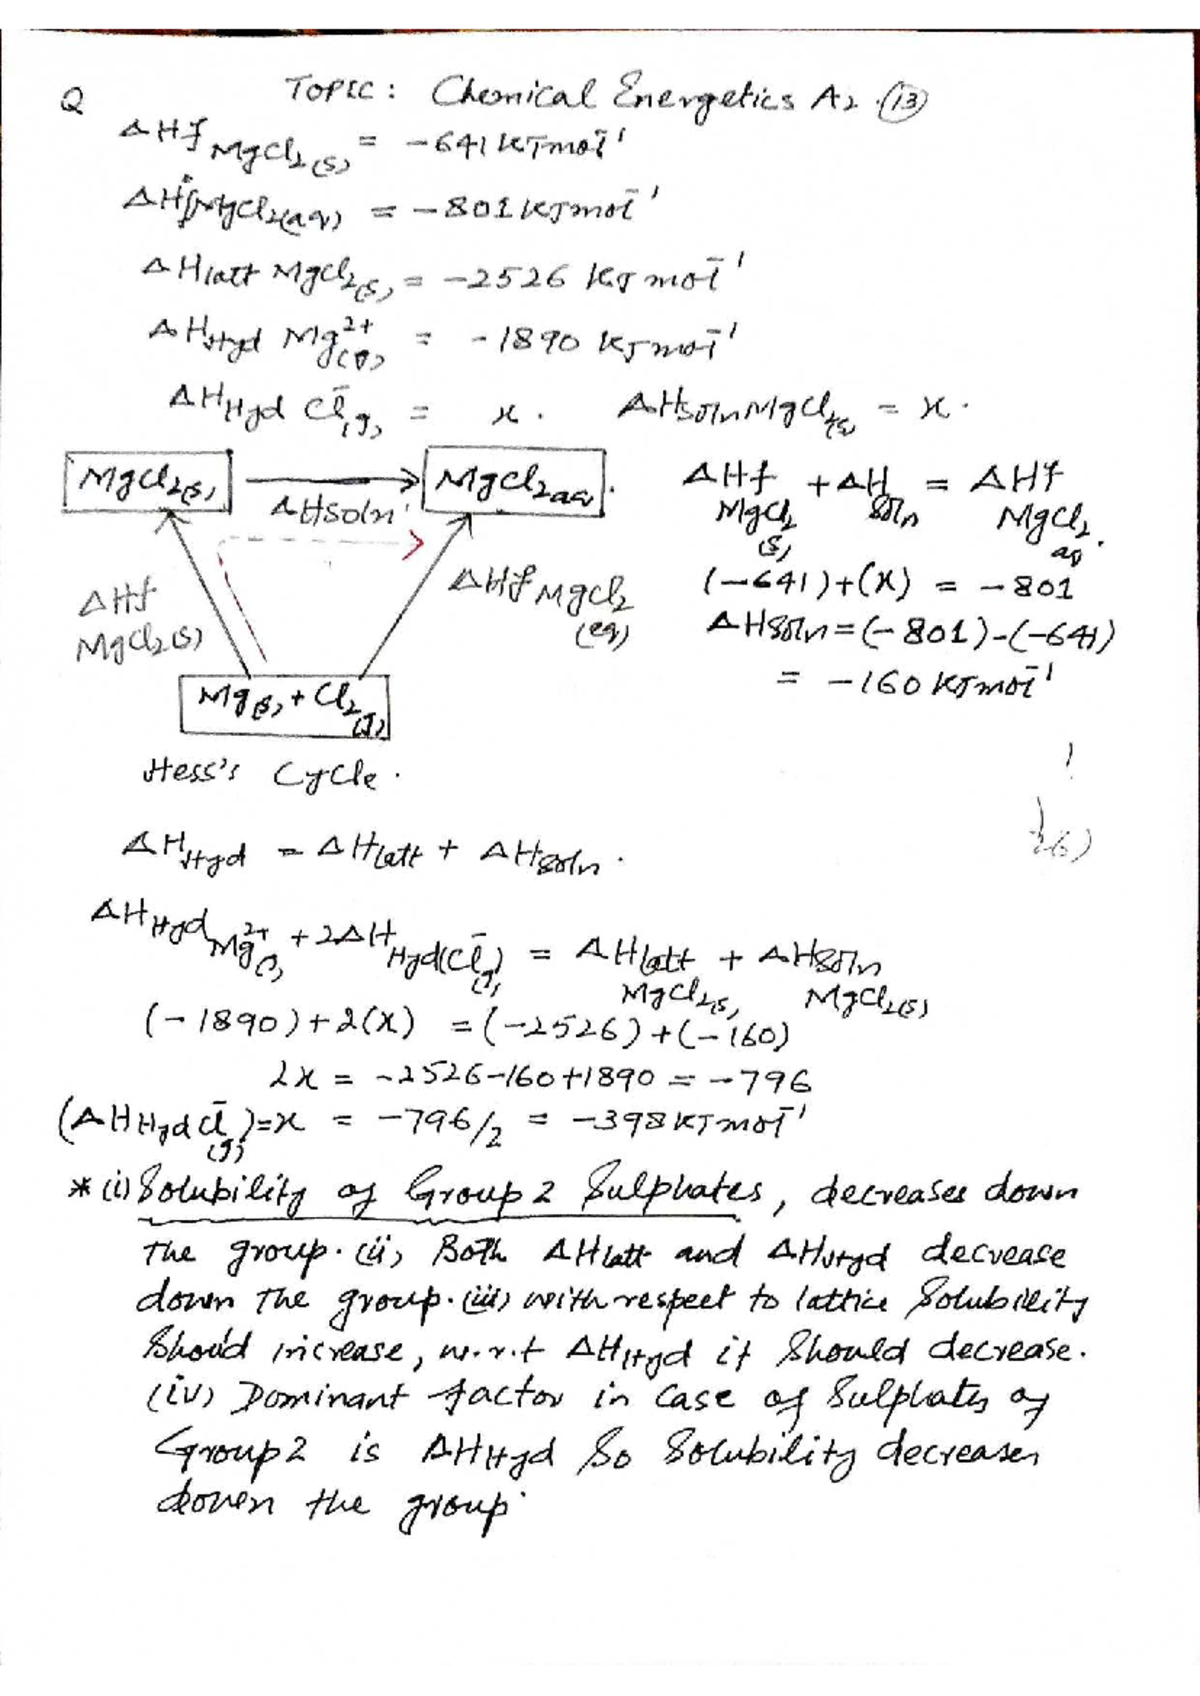 Q TOPIC: Chemical Energetics A2 (13)
ΔHf MgCl2(s) = -641 KJmol⁻¹
ΔHf MgCl2(aq) = -801 KJmol⁻¹
ΔHlatt MgCl2(s) = -2526 KJ mol⁻¹
ΔHHyd Mg²⁺(g) = -1890 KJmol⁻¹
ΔHHyd Cl⁻(g) = x. ΔHsoln MgCl2(s) = x.
MgCl2(s) MgCl2aq.
ΔHsoln
ΔHf MgCl2(s)
ΔHf MgCl2(aq)
Mg(s) + Cl2(g)
Hess's Cycle.
ΔHf MgCl2(s) + ΔHsoln = ΔHf MgCl2 aq.
(-641)+(x) = -801
ΔHsoln = (-801)-(-641)
= -160 KJmol⁻¹
ΔHHyd = ΔHlatt + ΔHsoln.
ΔHHyd Mg²⁺(g) + 2ΔHHyd(Cl⁻)(g) = ΔHlatt MgCl2(s) + ΔHsoln MgCl2(s)
(-1890)+2(x) = (-2526)+(-160)
2x = -2526-160+1890 = -796
(ΔHHyd Cl⁻(g))=x = -796/2 = -398KJmol⁻¹
* (i) Solubility of Group 2 Sulphates, decreases down
The group. (ii) Both ΔHlatt and ΔHHyd decrease
down The group. (iii) with respect to lattice Solubility
Should increase, w.r.t ΔHHyd it Should decrease.
(iv) Dominant factor in case of Sulphates of
Group 2 is ΔHHyd So Solubility decreases
down the group.